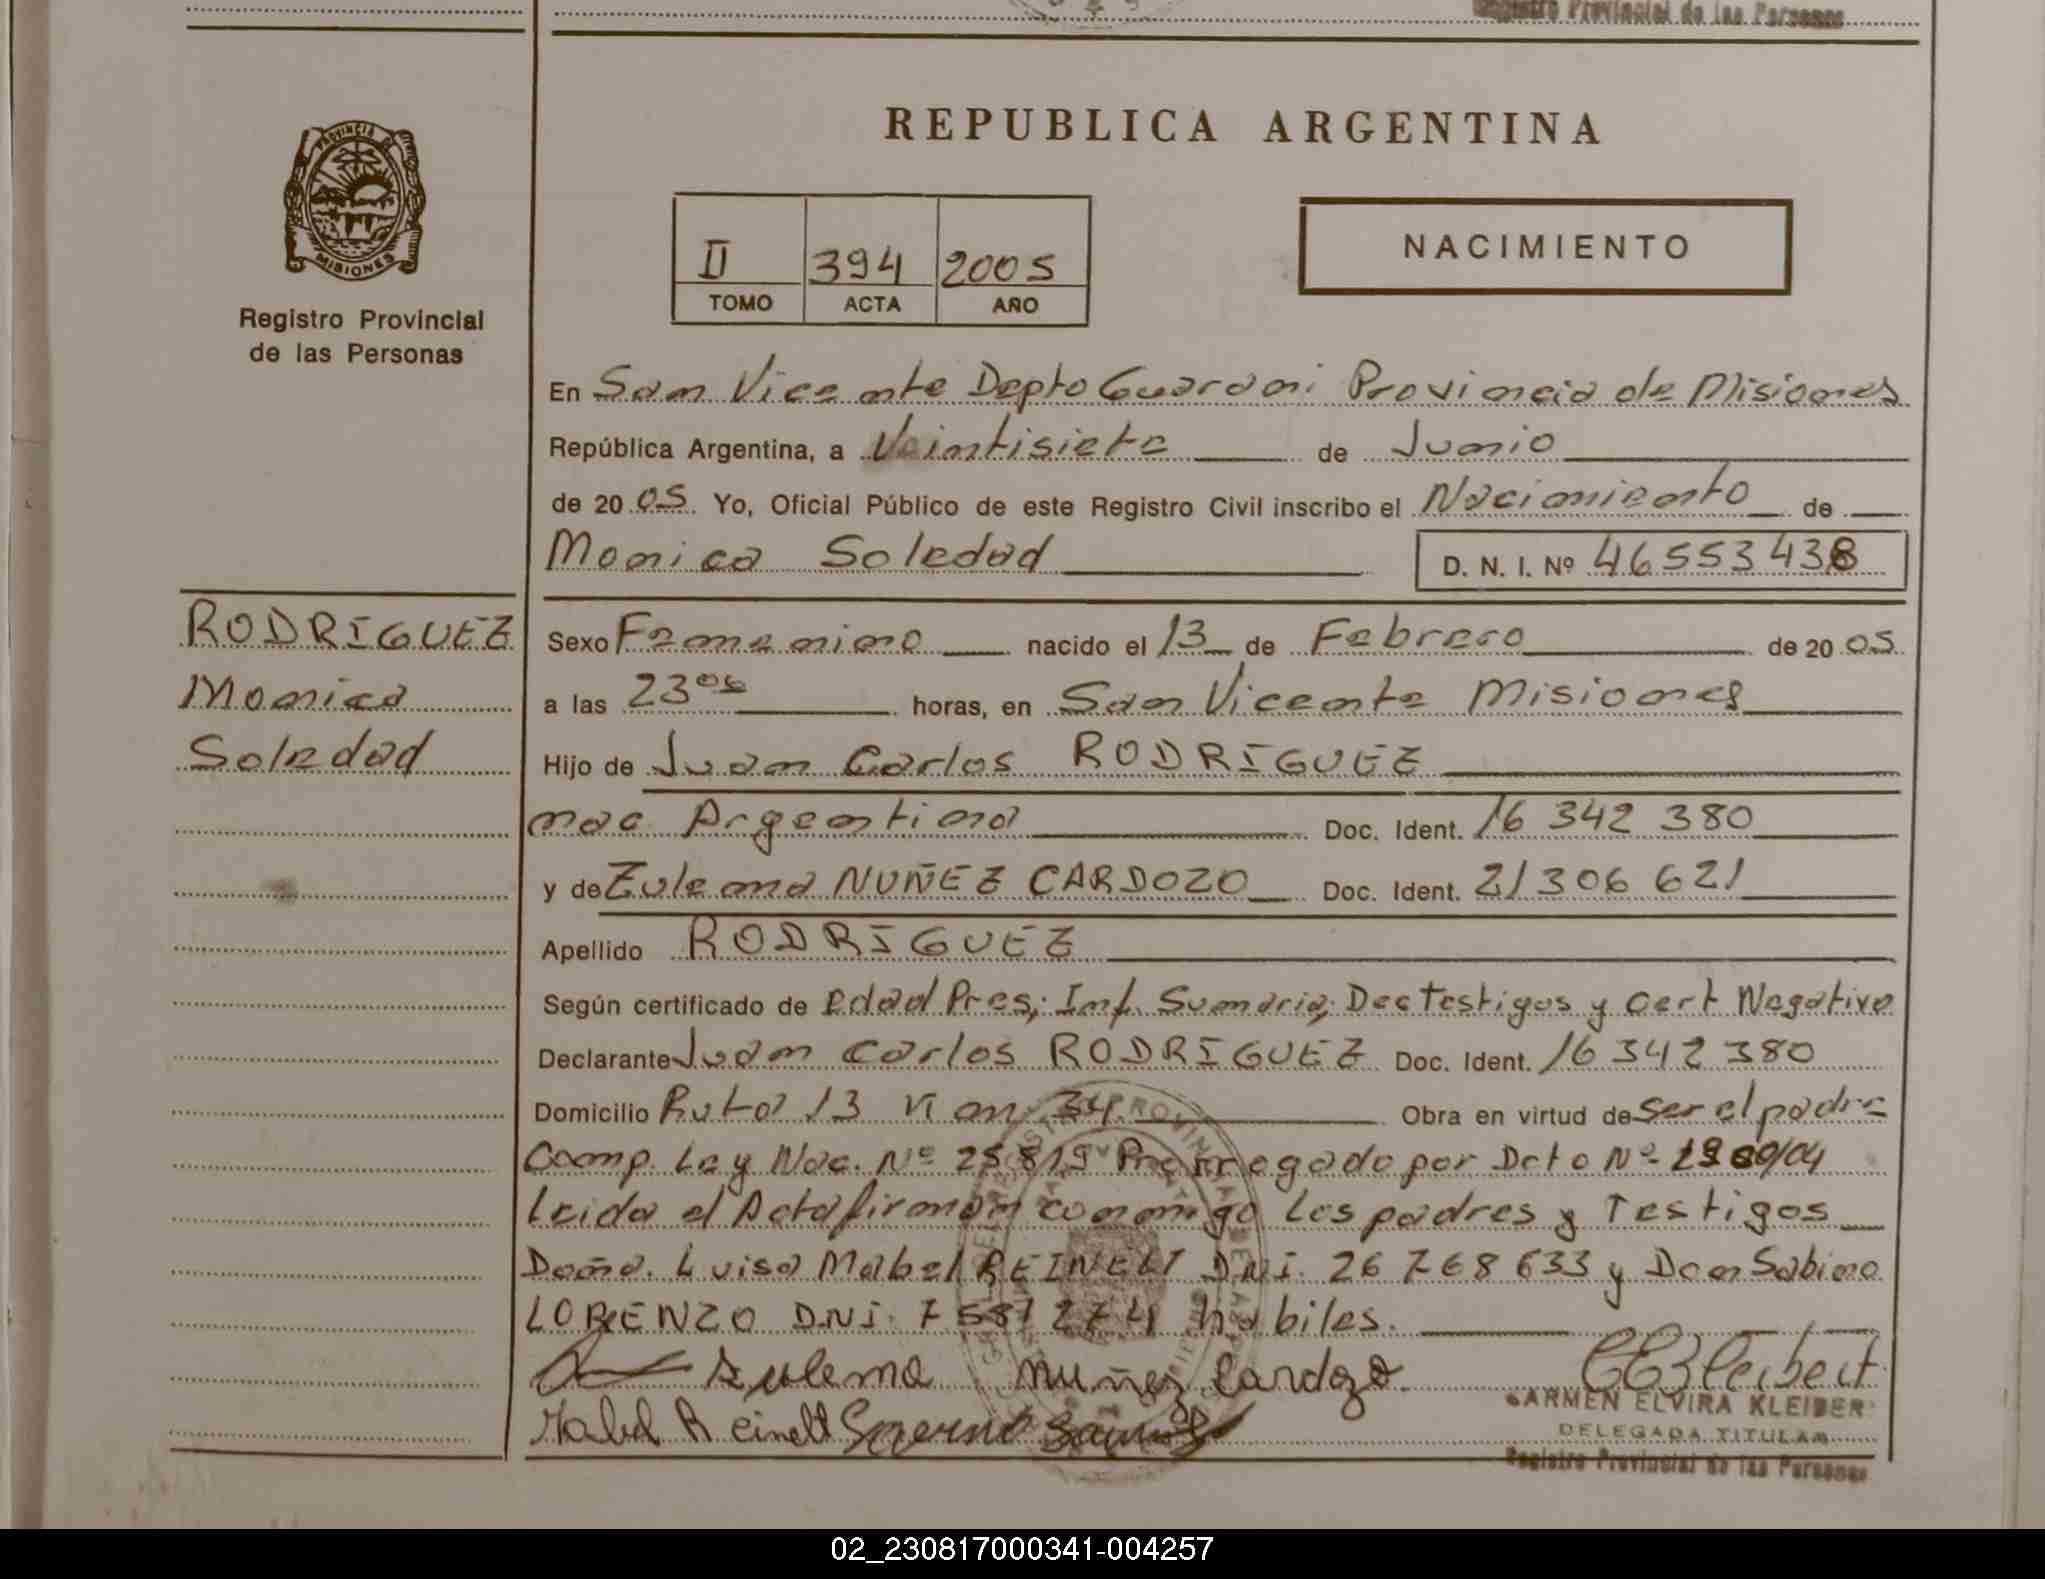 Registro Provincial de las Personas
PROVINCIA DE
MISIONES
Registro Provincial
de las Personas
REPUBLICA ARGENTINA
II 394 2005
TOMO ACTA AÑO
NACIMIENTO
En San Vicente Depto Guarani Provincia de Misiones
República Argentina, a Veintisiete de Junio
de 20 05 Yo, Oficial Público de este Registro Civil inscribo el Nacimiento de
Monica Soledad D. N. I. Nº 46553438
RODRIGUEZ
Monica
Soledad
Sexo Femenino nacido el 13 de Febrero de 20 05
a las 23 06 horas, en San Vicente Misiones
Hijo de Juan Carlos RODRIGUEZ
nac Argentina Doc. Ident. 16 342 380
y de Zulema NUÑEZ CARDOZO Doc. Ident. 21 306 621
Apellido RODRIGUEZ
Según certificado de edad Pres; Inf. Sumaria; Dec Testigos y cert Negativo
Declarante Juan Carlos RODRIGUEZ Doc. Ident. 16 342 380
Domicilio Ruta 13 Km 34 Obra en virtud de ser el padre
Comp. Ley Nac. Nº 25 819 Prorrogado por Dcto Nº
Leida el Acta firman conmigo los padres y Testigos
Doña. Luisa Mabel REINELT DNI. 26 768 633 y Don Sabino
LORENZO DNI. 7 587 274 habiles.
Zulema Nuñez Cardozo
Mabel Reinelt
CARMEN ELVIRA KLEIBER
DELEGADA TITULAR
Registro Provincial de las Personas
02_230817000341-004257